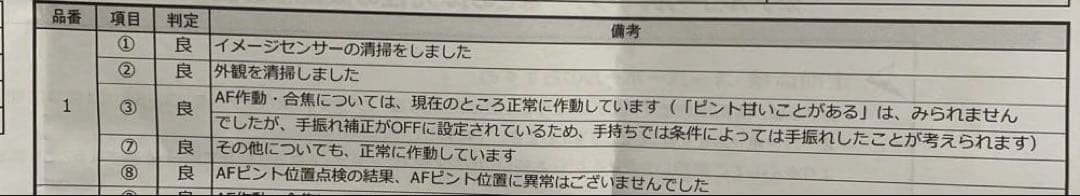 品番 項目 判定 備考
① 良 イメージセンサーの清掃をしました
② 良 外観を清掃しました
1 ③ 良 AF作動・合焦については、現在のところ正常に作動しています（「ピント甘いことがある」は、みられません
でしたが、手振れ補正がOFFに設定されているため、手持ちでは条件によっては手振れしたことが考えられます）
⑦ 良 その他についても、正常に作動しています
⑧ 良 AFピント位置点検の結果、AFピント位置に異常はございませんでした